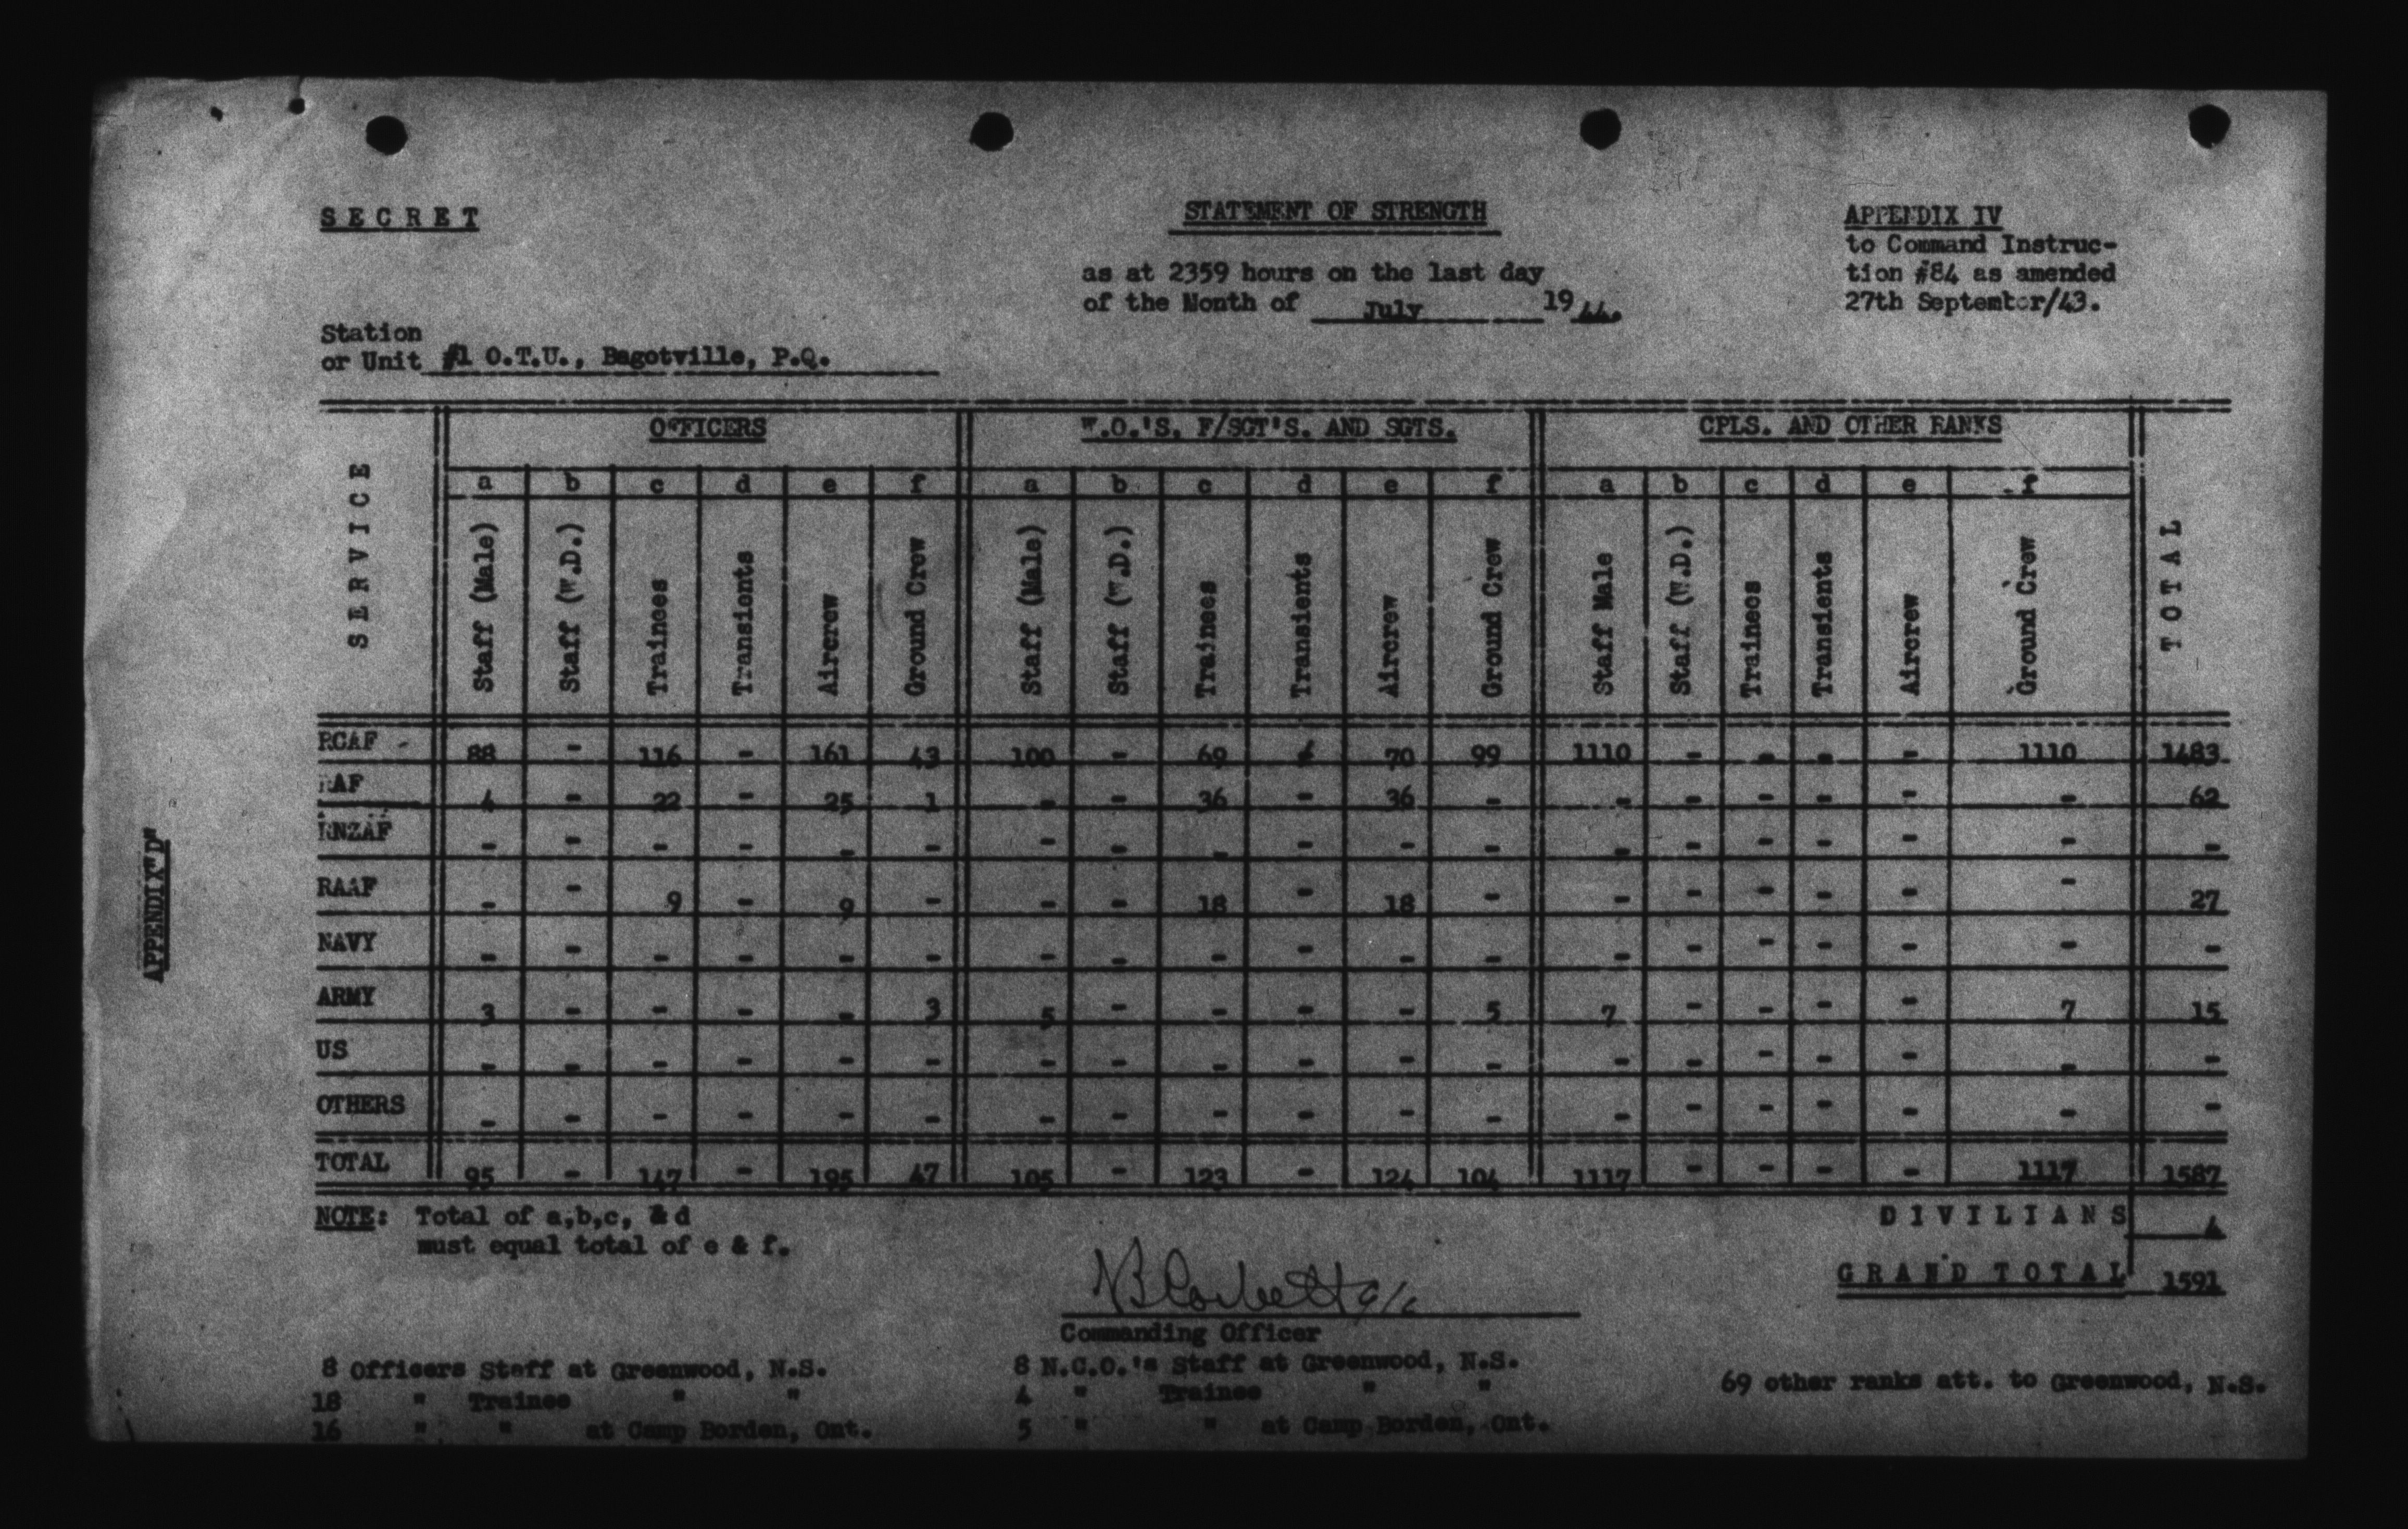 SECRET
STATEMENT OF STRENGTH
APPENDIX IV
to Command Instruc-
tion #84 as amended
27th September/43.
as at 2359 hours on the last day
of the Month of July 1944.
Station
or Unit #1 O.T.U., Bagotville, P.Q.
SERVICE
OFFICERS W.O.'S, F/SGT'S. AND SGTS. CPLS. AND OTHER RANKS
TOTAL
a b c d e f a b c d e f a b c d e f
Staff (Male) Staff (W.D.) Trainees Transients Aircrew Ground Crew Staff (Male) Staff (W.D.) Trainees Transients Aircrew Ground Crew Staff Male Staff (W.D.) Trainees Transients Aircrew Ground Crew
RCAF - 88 - 116 - 161 43 100 - 69 - 70 99 1110 - - - - 1110 1483
RAF 4 - 22 - 25 1 - - 36 - 36 - - - - - - - 62
RNZAF - - - - - - - - - - - - - - - - - - -
RAAF - - 9 - 9 - - - 18 - 18 - - - - - - - 27
NAVY - - - - - - - - - - - - - - - - - - -
ARMY 3 - - - - 3 5 - - - - 5 7 - - - - 7 15
US - - - - - - - - - - - - - - - - - - -
OTHERS - - - - - - - - - - - - - - - - - - -
TOTAL 95 - 147 - 195 47 105 - 123 - 124 104 1117 - - - - 1117 1587
NOTE: Total of a,b,c, & d
must equal total of e & f.
DIVILIANS 4
GRAND TOTAL 1591
Commanding Officer
8 Officers Staff at Greenwood, N.S.
18 " Trainee " "
16 " " at Camp Borden, Ont.
8 N.C.O.'s Staff at Greenwood, N.S.
4 " Trainee " "
5 " " at Camp Borden, Ont.
69 other ranks att. to Greenwood, N.S.
APPENDIX "D"